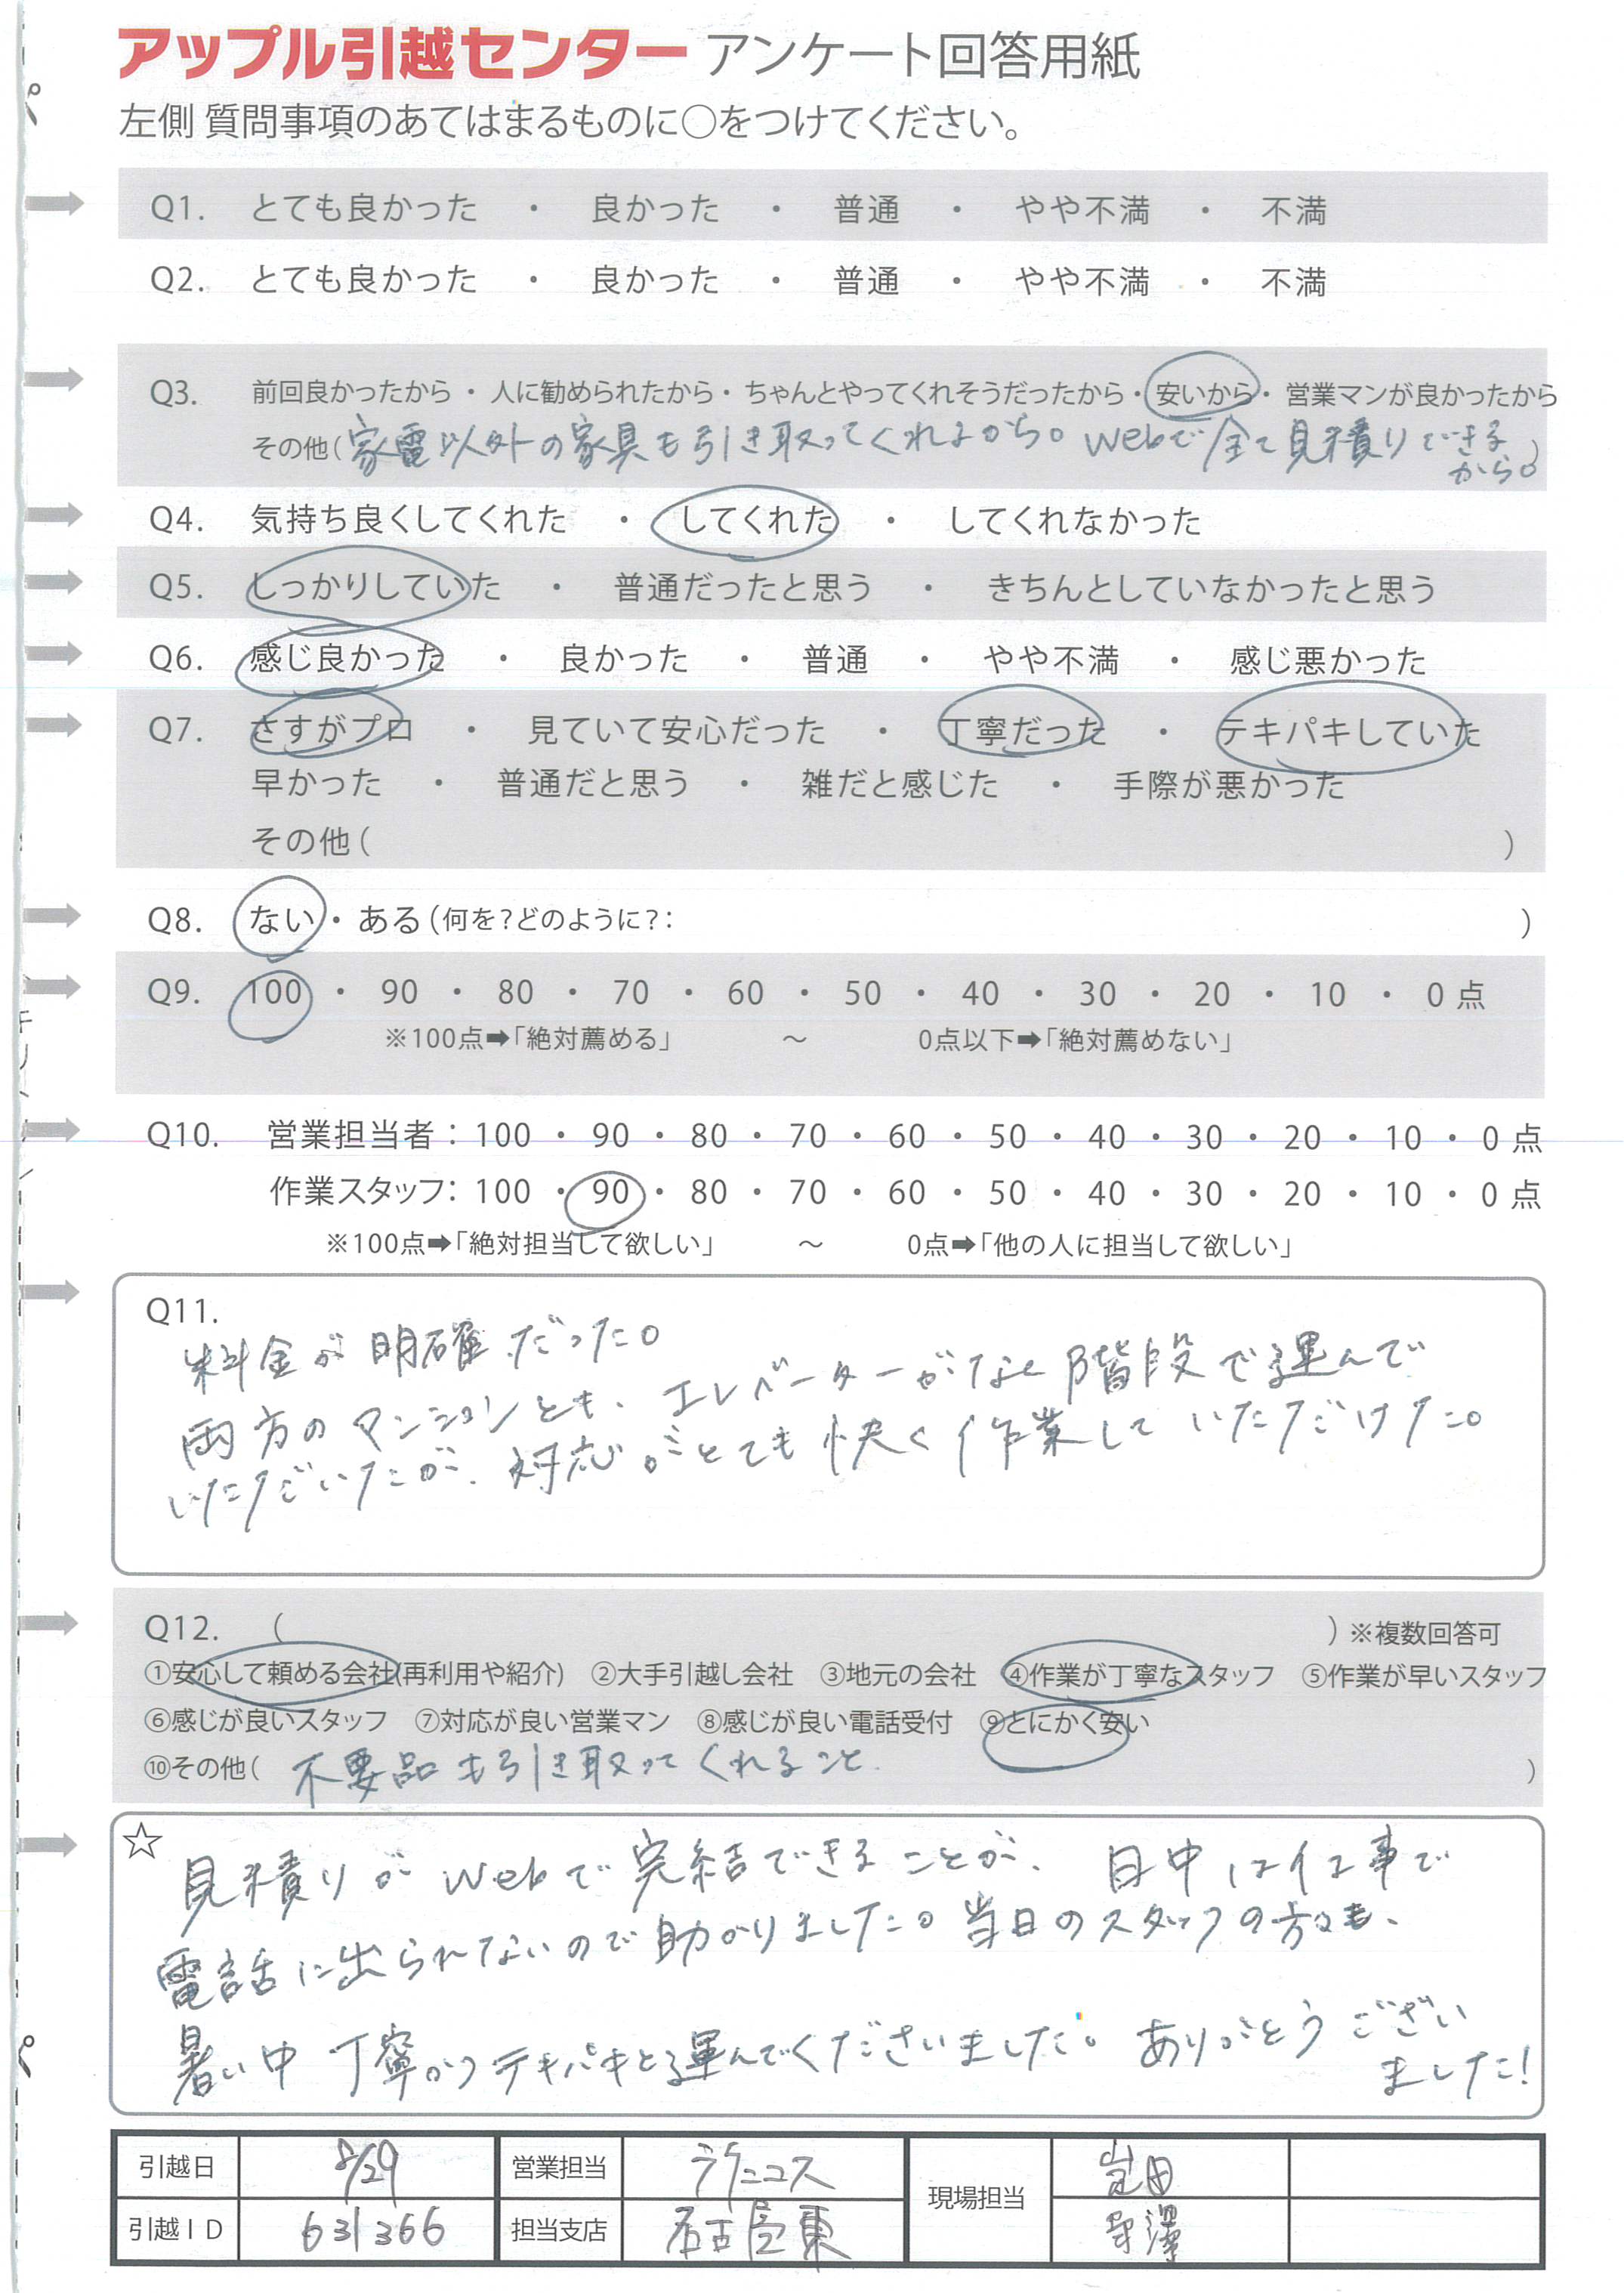 アップル引越センター アンケート回答用紙
左側 質問事項のあてはまるものに○をつけてください。
Q1. とても良かった ・ 良かった ・ 普通 ・ やや不満 ・ 不満
Q2. とても良かった ・ 良かった ・ 普通 ・ やや不満 ・ 不満
Q3. 前回良かったから ・ 人に勧められたから ・ ちゃんとやってくれそうだったから ・ 安いから ・ 営業マンが良かったから
その他( 家電以外の家具も引き取ってくれるから。 Webで全て見積りできる
から。)
Q4. 気持ち良くしてくれた ・ してくれた ・ してくれなかった
Q5. しっかりしていた ・ 普通だったと思う ・ きちんとしていなかったと思う
Q6. 感じ良かった ・ 良かった ・ 普通 ・ やや不満 ・ 感じ悪かった
Q7. さすがプロ ・ 見ていて安心だった ・ 丁寧だった ・ テキパキしていた
早かった ・ 普通だと思う ・ 雑だと感じた ・ 手際が悪かった
その他( )
Q8. ない ・ ある (何を?どのように?: )
Q9. 100 ・ 90 ・ 80 ・ 70 ・ 60 ・ 50 ・ 40 ・ 30 ・ 20 ・ 10 ・ 0 点
※100点➡「絶対薦める」 ～ 0点以下➡「絶対薦めない」
Q10. 営業担当者：100 ・ 90 ・ 80 ・ 70 ・ 60 ・ 50 ・ 40 ・ 30 ・ 20 ・ 10 ・ 0 点
作業スタッフ：100 ・ 90 ・ 80 ・ 70 ・ 60 ・ 50 ・ 40 ・ 30 ・ 20 ・ 10 ・ 0 点
※100点➡「絶対担当して欲しい」 ～ 0点➡「他の人に担当して欲しい」
Q11.
料金が明確だった。
両方のマンションとも、エレベーターがなく階段で運んで
いただいたが、対応がとても快く作業していただけた。
Q12. ( ) ※複数回答可
①安心して頼める会社(再利用や紹介) ②大手引越し会社 ③地元の会社 ④作業が丁寧なスタッフ ⑤作業が早いスタッフ
⑥感じが良いスタッフ ⑦対応が良い営業マン ⑧感じが良い電話受付 ⑨とにかく安い
⑩その他( 不要品も引き取ってくれること. )
☆
見積りがWebで完結できることが、日中は仕事で
電話に出られないので助かりました。当日のスタッフの方々も、
暑い中 丁寧かつテキパキと運んでくださいました。ありがとうござい
ました!
引越日 8/29 営業担当 ラクニコス 現場担当 岩田
引越ID 631366 担当支店 名古屋東 寺澤